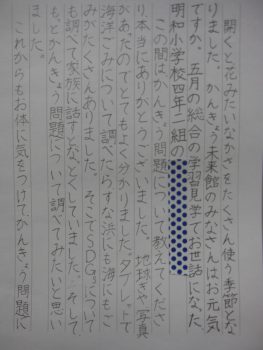 開くと花みたいなかさをたくさん使う季節とな
りました。かんきょう未来館のみなさんはお元気
ですか。五月の総合の学習見学でお世話になった
明和小学校四年二組の
この間はかんきょう問題について教えてくださ
り本当にありがとうございました。地球ぎや写真
があったのでとてもよく分かりました。タブレットで
海洋ごみについて調べたらすな浜にも海にもご
みがたくさんありました。そこでSDGsについて
も調べて家族に話すとなっとくしていました。そして、
もっとかんきょう問題について調べてみたいと思い
ました。
これからもお体に気をつけてかんきょう問題に